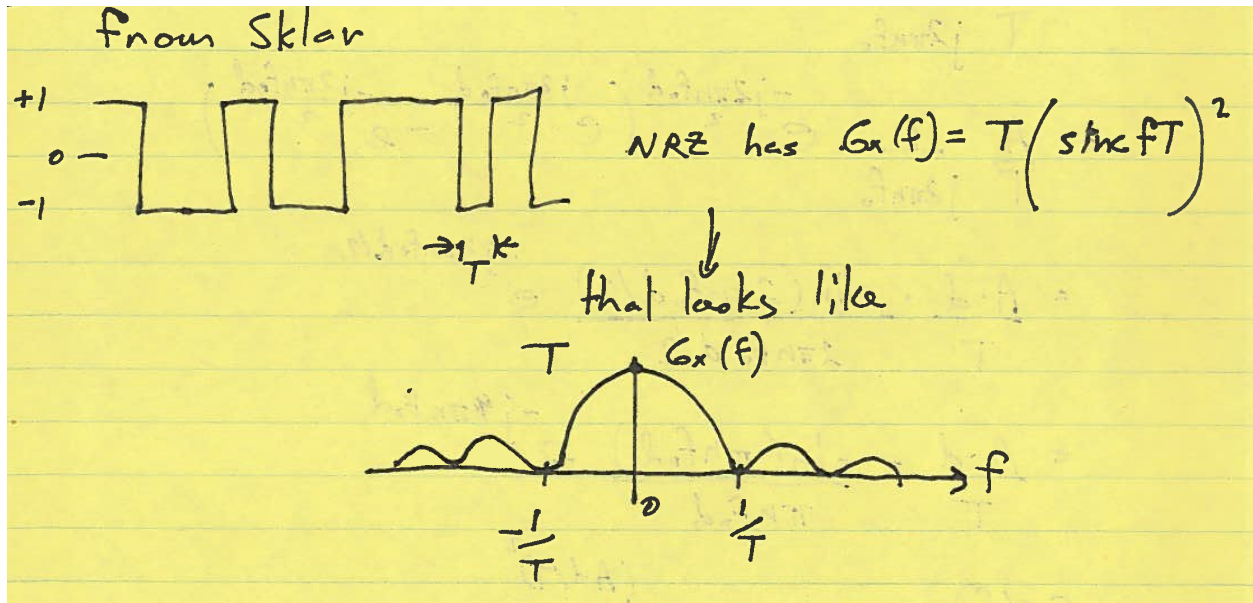 From Sklar
+1
0
-1
T
NRZ has Gx(f) = T(sinc fT)²
that looks like
T Gx(f)
f
0
-1/T
1/T